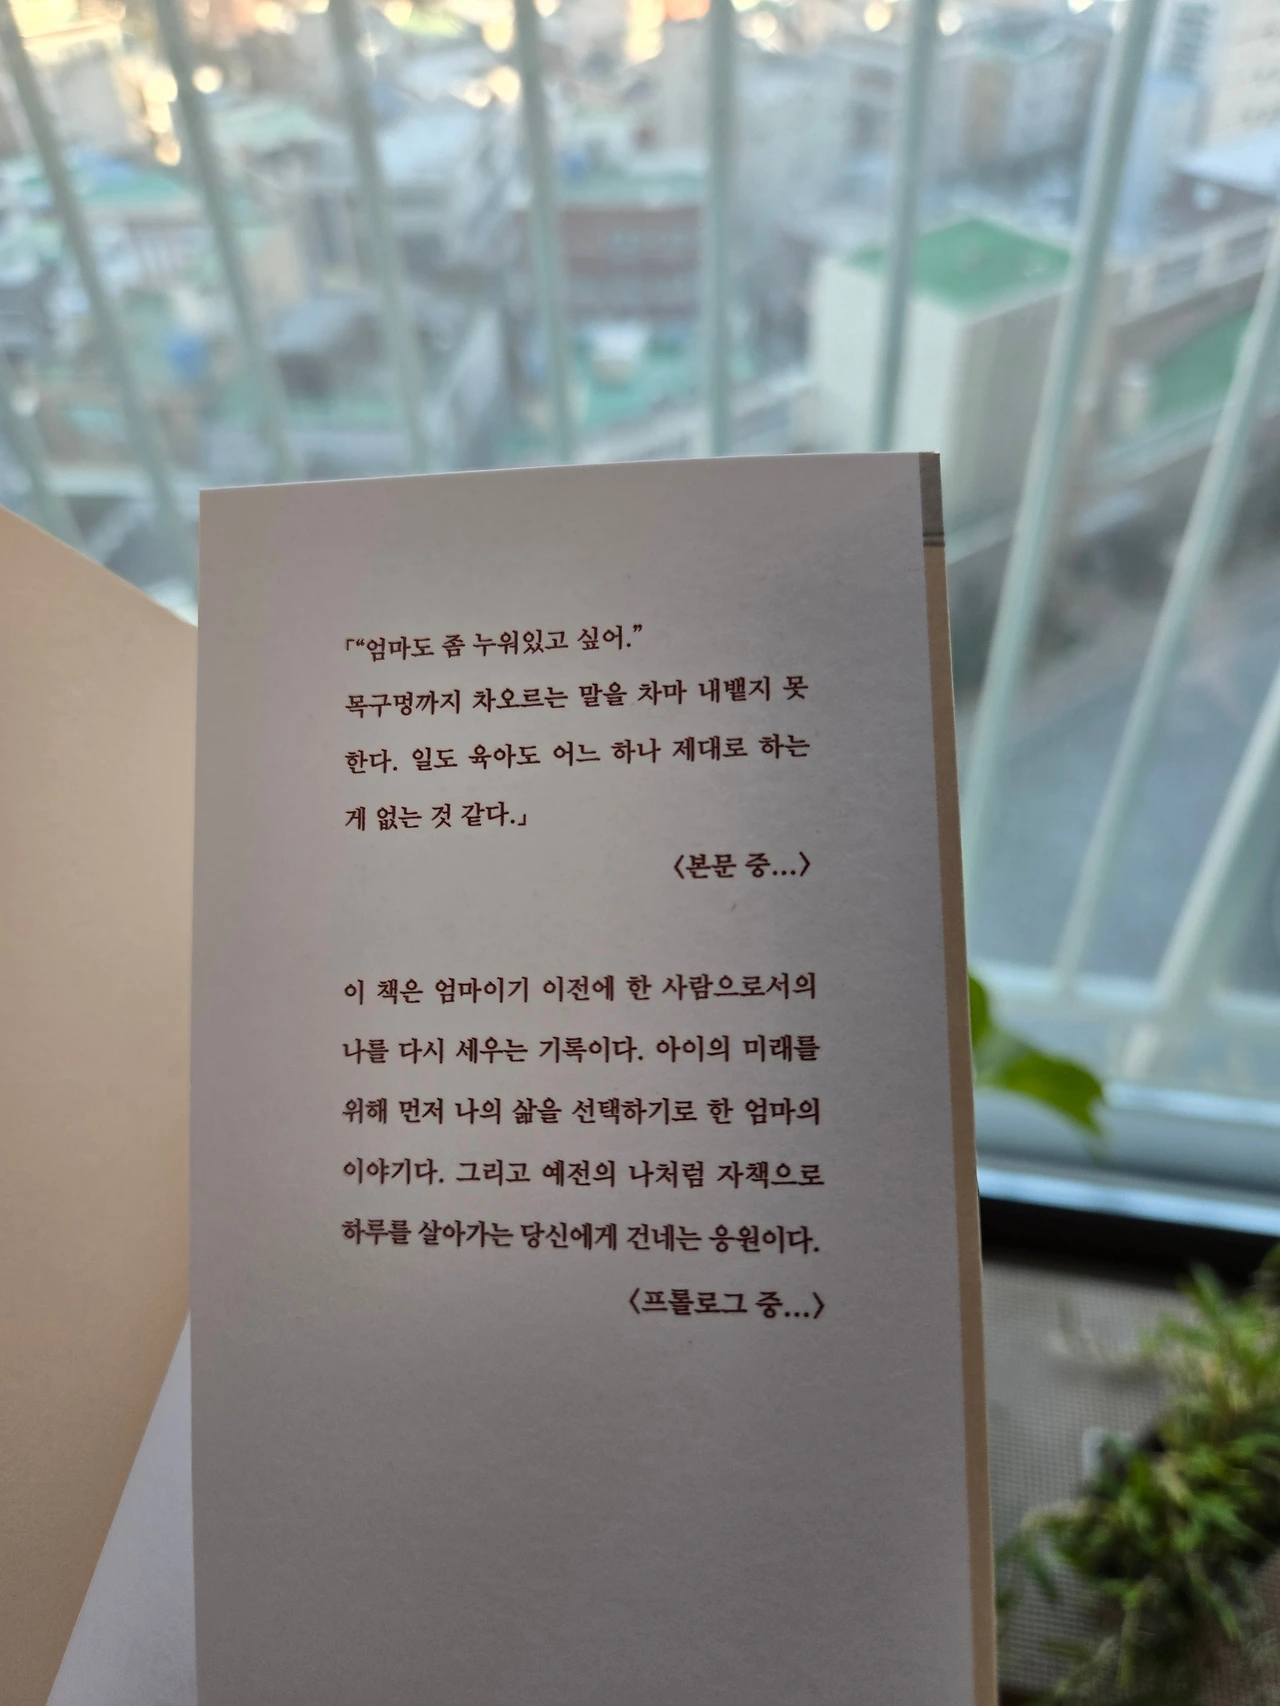 「“엄마도 좀 누워있고 싶어.”
목구멍까지 차오르는 말을 차마 내뱉지 못
한다. 일도 육아도 어느 하나 제대로 하는
게 없는 것 같다.」
〈본문 중...〉
이 책은 엄마이기 이전에 한 사람으로서의
나를 다시 세우는 기록이다. 아이의 미래를
위해 먼저 나의 삶을 선택하기로 한 엄마의
이야기다. 그리고 예전의 나처럼 자책으로
하루를 살아가는 당신에게 건네는 응원이다.
〈프롤로그 중...〉